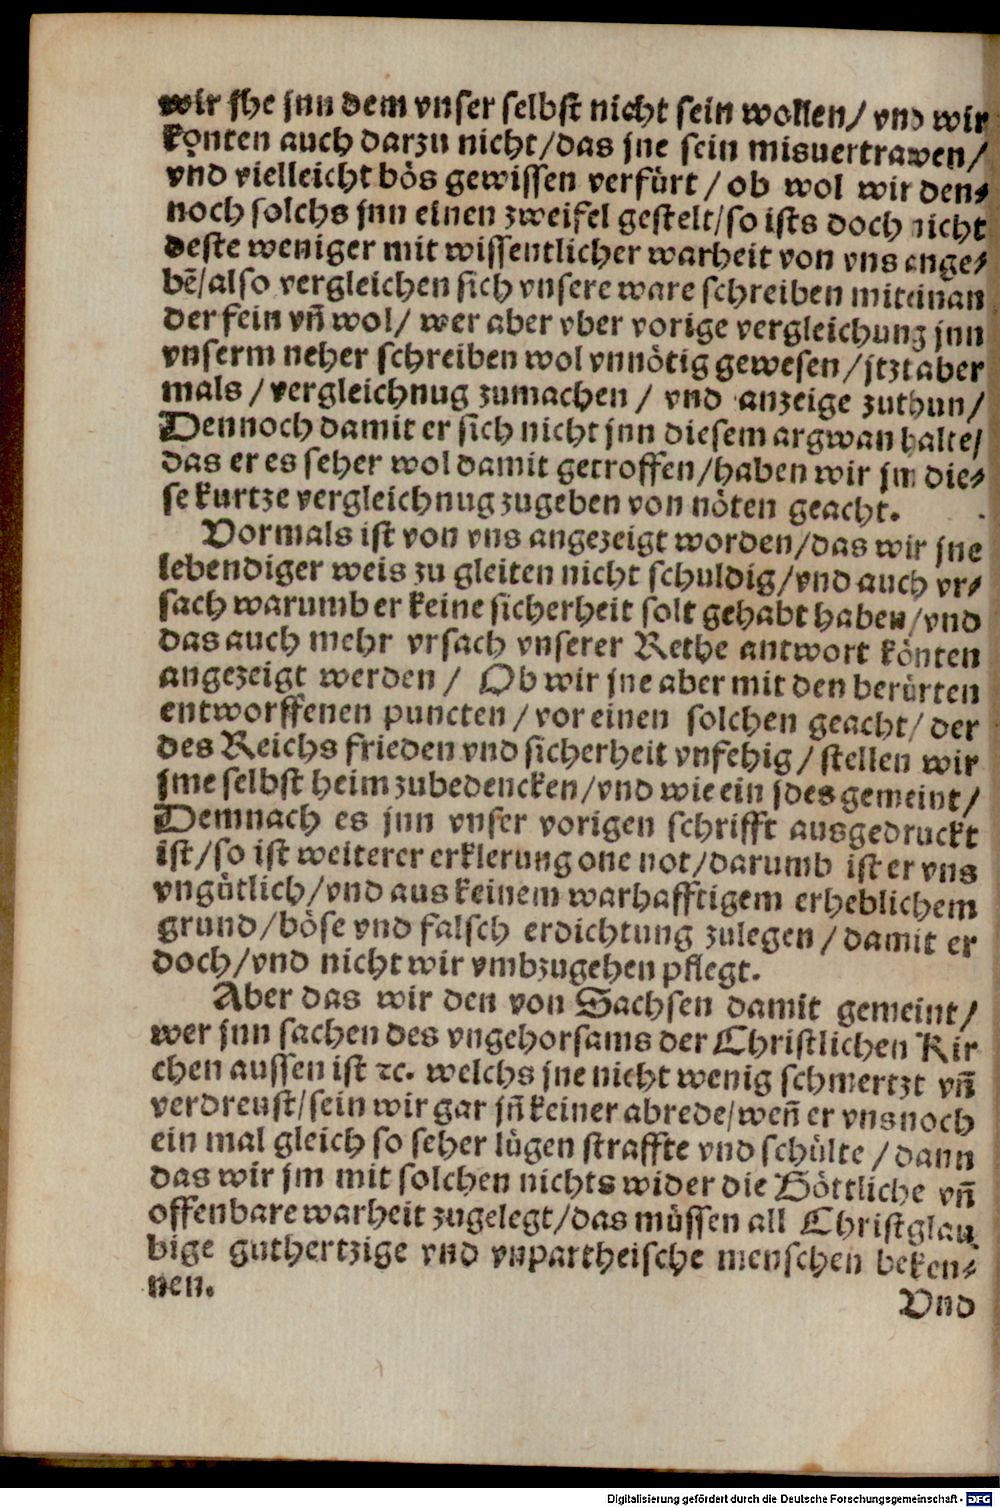 wir jhe jnn dem vnser selbst nicht sein wollen/ vnd wir
konten auch darzu nicht/das jne sein misuertrawen/
vnd vielleicht bös gewissen verfürt / ob wol wir den⸗
noch solchs jnn einen zweifel gestelt/so ists doch nicht
deste weniger mit wissentlicher warheit von vns ange⸗
bẽ/also vergleichen sich vnsere ware schreiben miteinan
der fein vñ wol/ wer aber vber vorige vergleichung jnn
vnserm neher schreiben wol vnnötig gewesen/jtzt aber
mals / vergleichnug zumachen / vnd anzeige zuthun/
Dennoch damit er sich nicht jnn diesem argwan halte/
das er es seher wol damit getroffen/haben wir jm die⸗
se kurtze vergleichnug zugeben von nöten geacht.
Vormals ist von vns angezeigt worden/das wir jne
lebendiger weis zu gleiten nicht schuldig/vnd auch vr⸗
sach warumb er keine sicherheit solt gehabt haben/vnd
das auch mehr vrsach vnserer Rethe antwort könten
angezeigt werden / Ob wir jne aber mit den berürten
entworffenen puncten / vor einen solchen geacht/ der
des Reichs frieden vnd sicherheit vnfehig / stellen wir
jme selbst heim zubedencken/vnd wie ein jdes gemeint/
Demnach es jnn vnser vorigen schrifft ausgedruckt
ist/so ist weiterer erklerung one not/darumb ist er vns
vngütlich/vnd aus keinem warhafftigem erheblichem
grund/böse vnd falsch erdichtung zulegen / damit er
doch/vnd nicht wir vmbzugehen pflegt.
Aber das wir den von Sachsen damit gemeint/
wer jnn sachen des vngehorsams der Christlichen Kir
chen aussen ist ꝛc. welchs jne nicht wenig schmertzt vñ
verdreust/sein wir gar jñ keiner abrede/weñ er vns noch
ein mal gleich so seher lügen straffte vnd schülte / dann
das wir jm mit solchen nichts wider die Göttliche vñ
offenbare warheit zugelegt/das müssen all Christglau
bige guthertzige vnd vnpartheische menschen beken⸗
nen.
Vnd
Digitalisierung gefördert durch die Deutsche Forschungsgemeinschaft - DFG